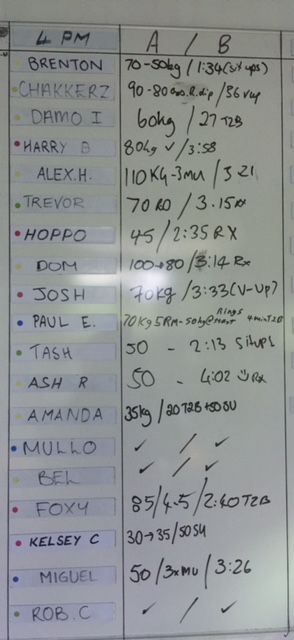 4 PM A / B
BRENTON 70-50kg / 1:34 (sit ups)
CHAKKERZ 90-80 R.dip / 36 vup
DAMO I 60kg / 27 T2B
HARRY B 80kg ✓ / 3:58
ALEX.H. 110 KG-3MU / 3:21
TREVOR 70 RO / 3.15 RX
HOPPO 45 / 2:35 RX
DOM 100→80 / 3:14 Rx
JOSH 70kg / 3:33 (V-UP)
PAUL E. 70kg 5RM-50kg Rings
TASH 50 - 2:13 Situps
ASH R 50 - 4:02 Rx
AMANDA 35kg / 20 T2B +50 SU
MULLO ✓ / ✓
BEL ✓ / ✓
FOXY 85/4.5/2:40 T2B
KELSEY C 30→35/50 SU
MIGUEL 50 / 3xMU / 3:26
ROB.C ✓ / ✓